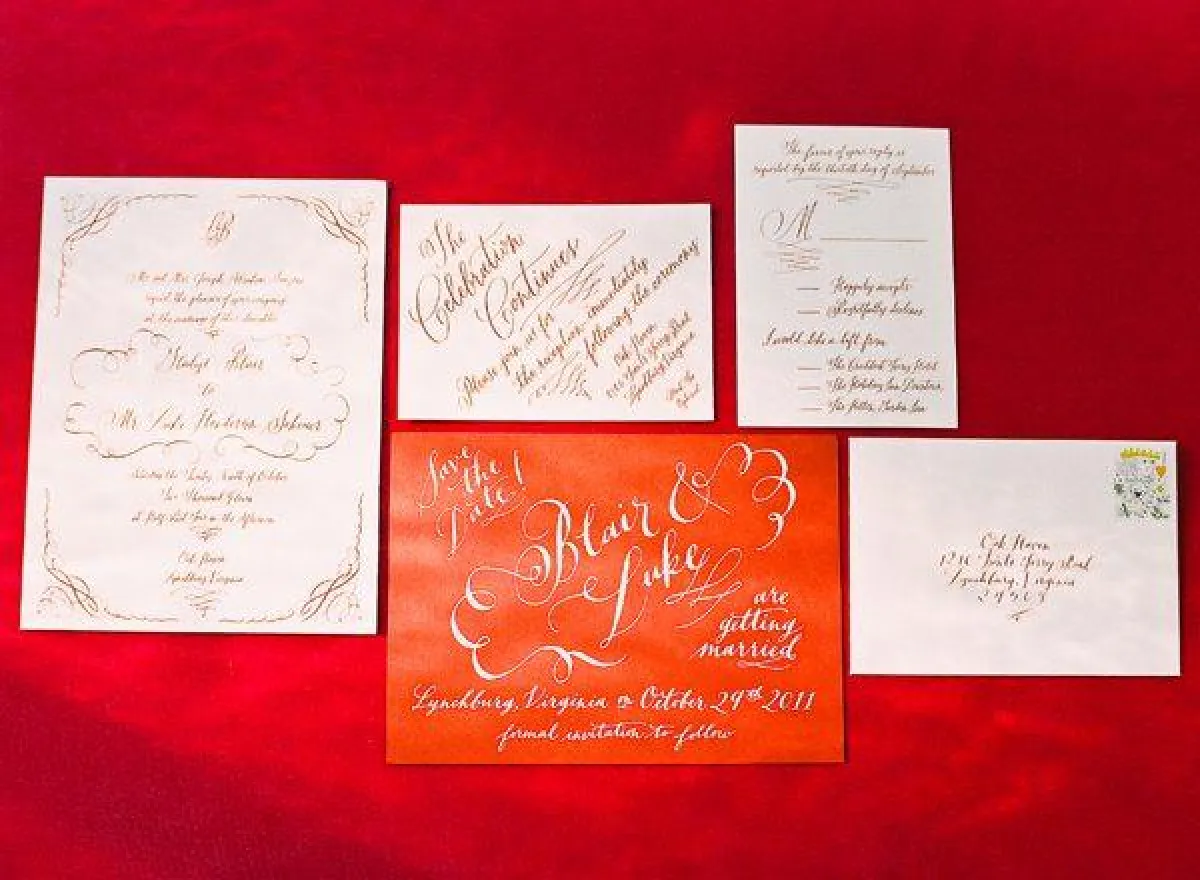 Mr and Mrs Joseph
request the pleasure of your company
at the marriage of their daughter
Gladys Blair
to
Mr Luke
Saturday the Twenty Ninth of October
Two Thousand Eleven
at Half past Four in the Afternoon
Oak Haven
Lynchburg Virginia
The
Celebration
Continues
Please join us for
the reception immediately
following the ceremony
Oak Haven
Lynchburg Virginia
The favour of your reply is
requested by the thirtieth day of September
M
Happily accepts
Regretfully declines
I would like a lift from
The Craddock Terry Hotel
The Holiday Inn Downtown
Save
the
Date!
Blair &
Luke
are
getting
married
Lynchburg, Virginia on October 29th 2011
formal invitation to follow
Oak Haven
Ferry street
Lynchburg, Virginia
24503